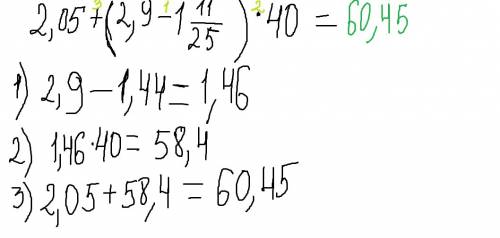 2,05 + (2,9 - 1 11/25) · 40 = 60,45
1) 2,9 - 1,44 = 1,46
2) 1,46 · 40 = 58,4
3) 2,05 + 58,4 = 60,45